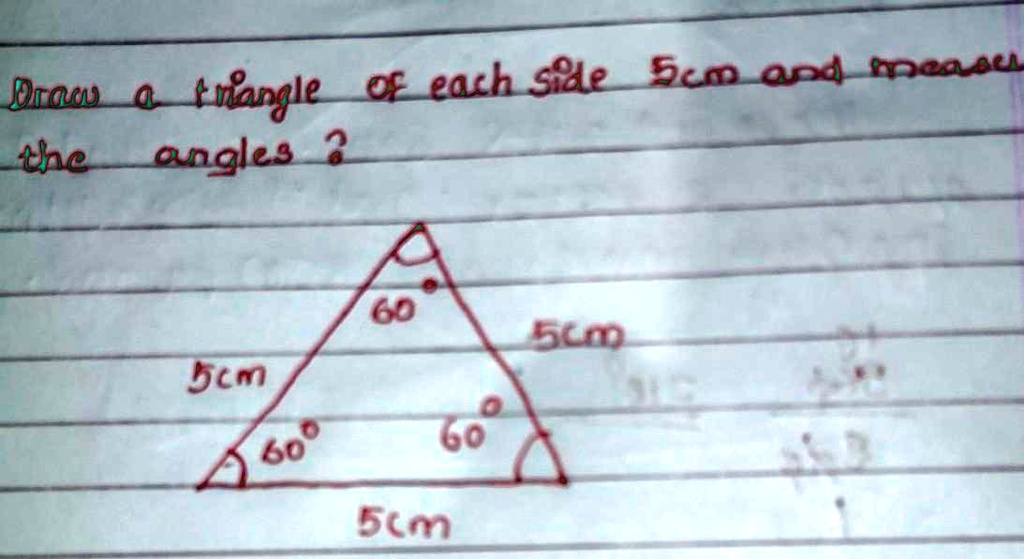 Draw a triangle of each side 5cm and measu
the angles ?
60°
5cm
5cm
60°
60°
5cm